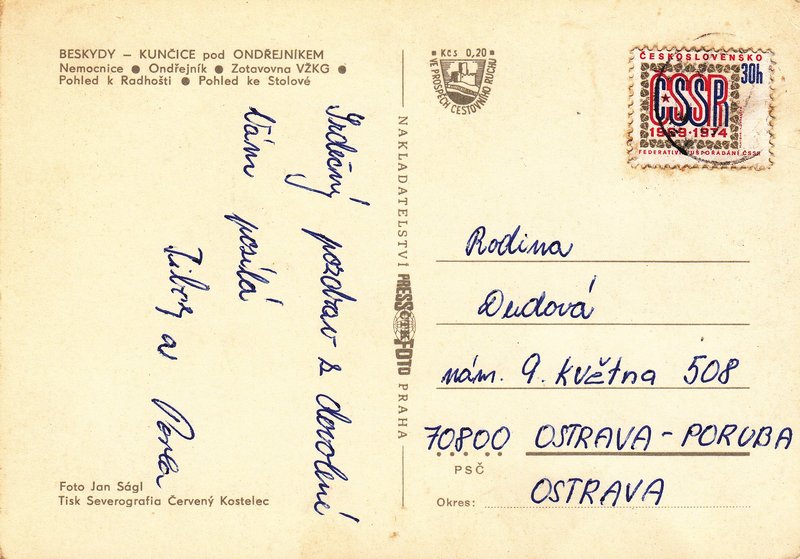 BESKYDY – KUNČICE pod ONDŘEJNÍKEM
Nemocnice ● Ondřejník ● Zotavovna VŽKG ●
Pohled k Radhošti ● Pohled ke Stolové
Srdečný pozdrav z dovolené
Vám posílá
a
Foto Jan Ságl
Tisk Severografia Červený Kostelec
NAKLADATELSTVÍ PRESSFOTO PRAHA
ČTK
Kčs 0,20
VE PROSPĚCH CESTOVNÍHO RUCHU
ČESKOSLOVENSKO
30h
ČSSR
1969·1974
FEDERATIVNÍ USPOŘÁDÁNÍ ČSSR
Rodina
Dudová
nám. 9. Května 508
70800 OSTRAVA-PORUBA
PSČ
OSTRAVA
Okres: